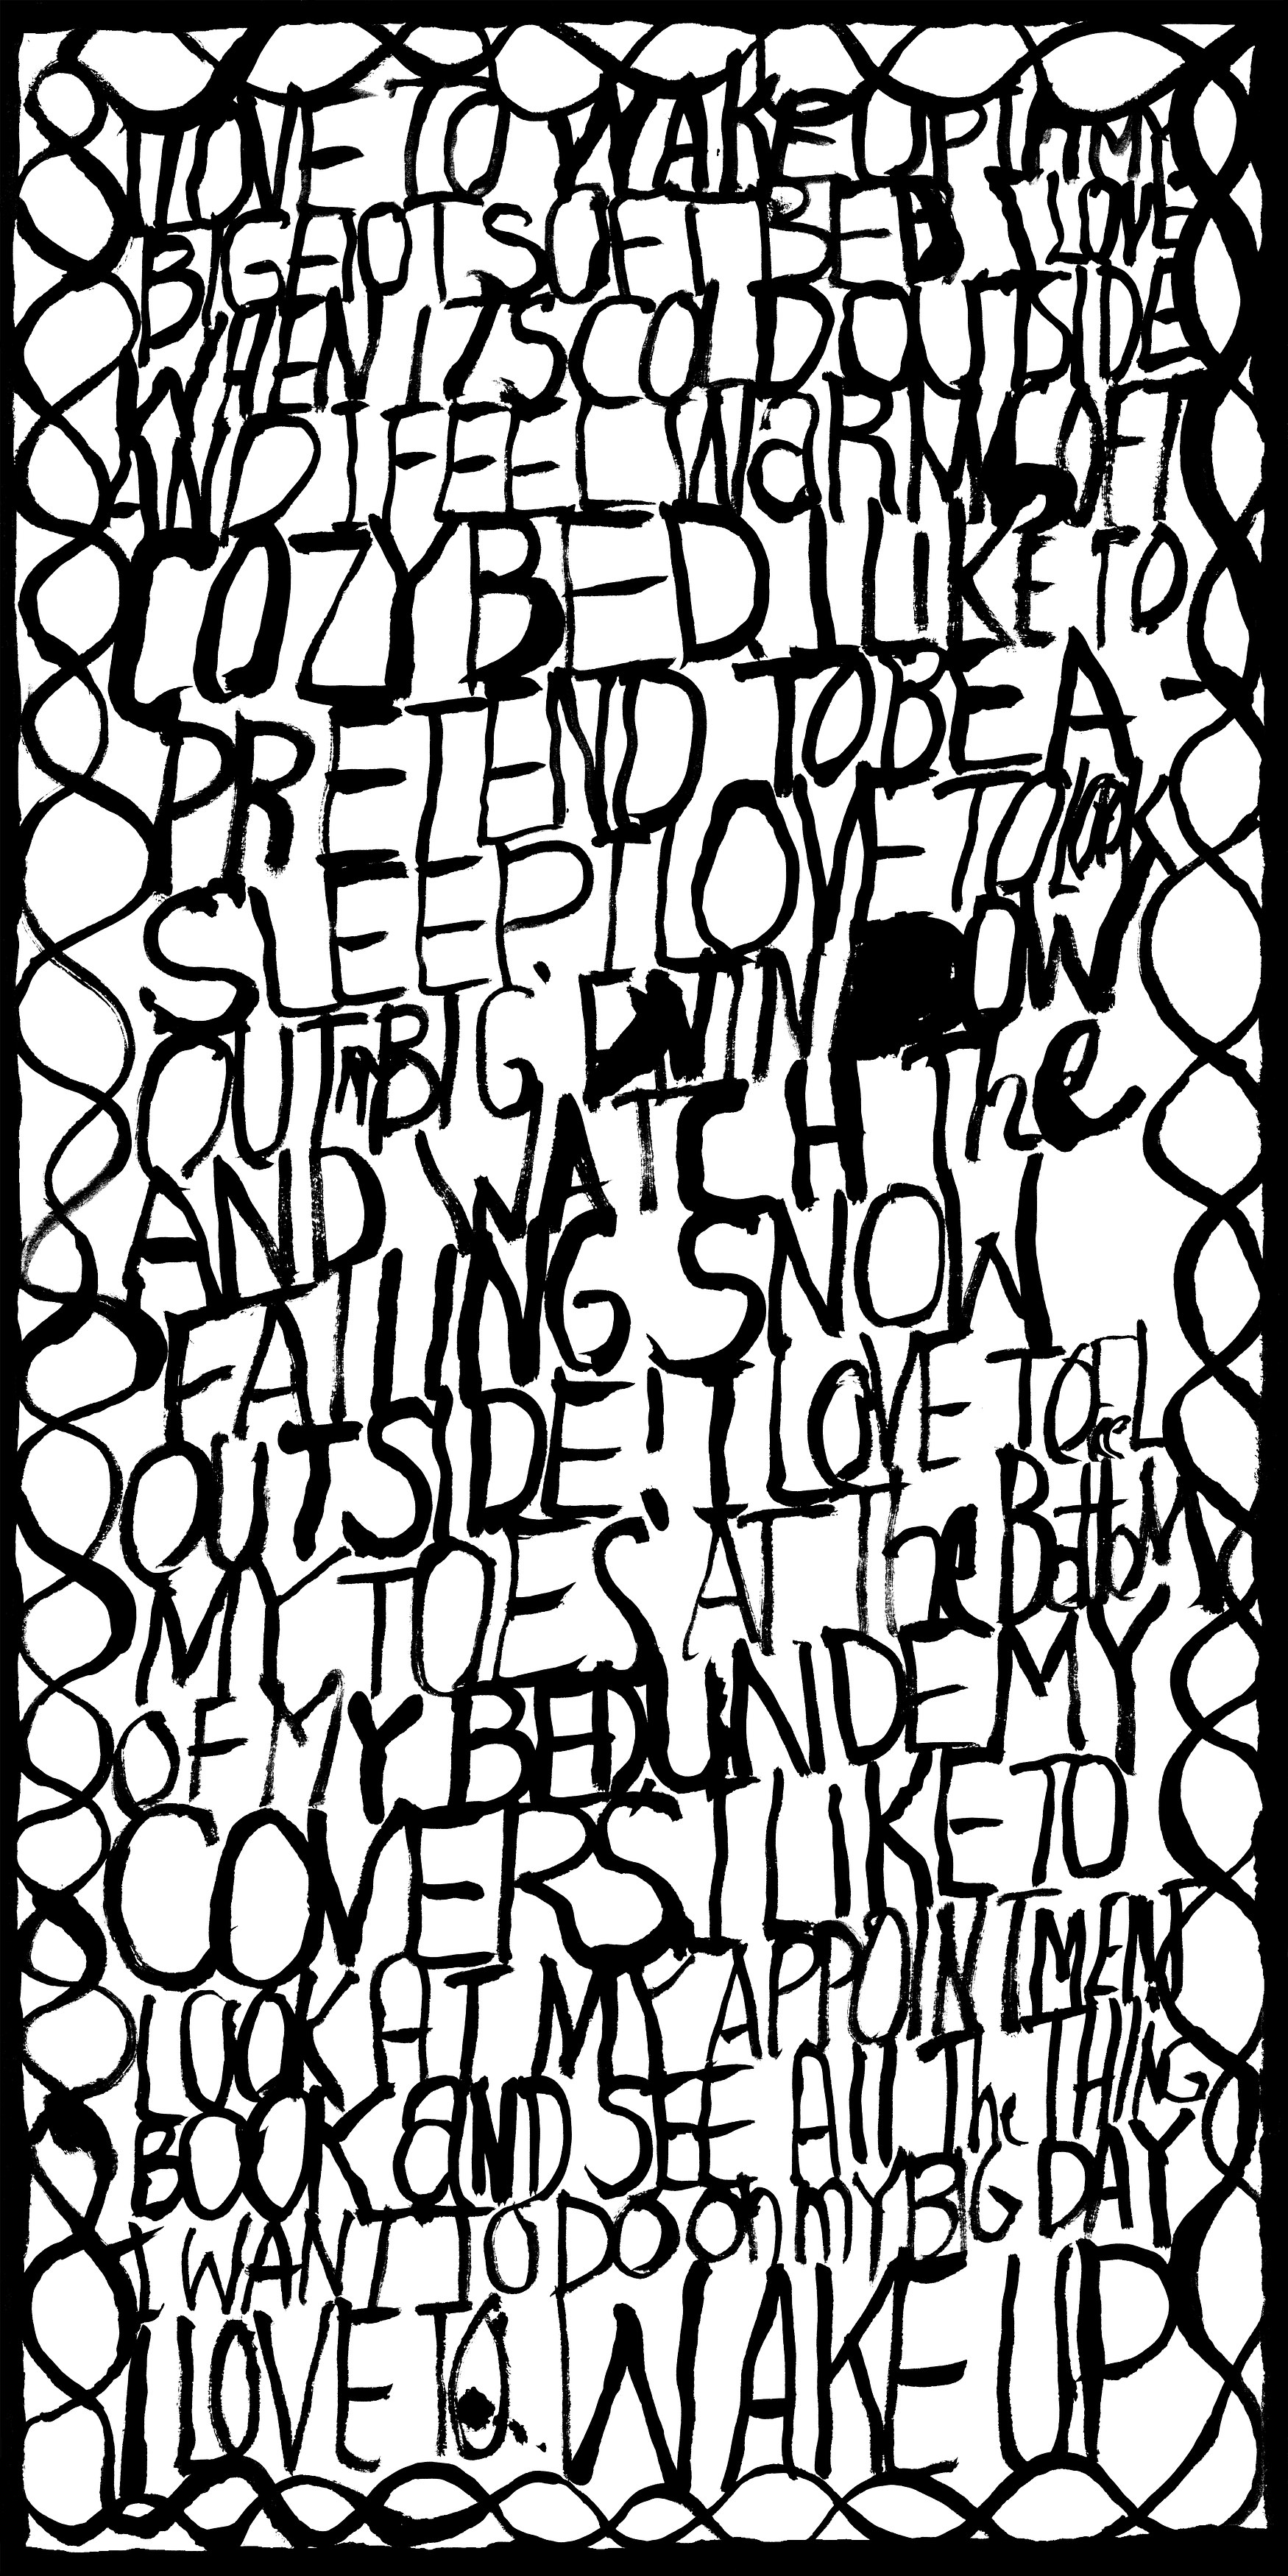 I LOVE TO WAKE UP IN MY
BIG SOFT BED I LOVE
WHEN ITS COLD OUTSIDE
AND I FEEL WARM SOFT
COZY BED. I LIKE TO
PRETEND TO BE A
SLEEP. I LOVE TO look
OUT mBIG WINDOW
AND WATCH The
FALLING SNOW
OUTSIDE! I LOVE TO FeeL
MY TOES AT The BottoM
OF MY BED UNDE MY
COVERS I LIKE TO
LOOK AT MY APPOINTMENT
BOOK aND SEE All The THING
I WANT TO DO On mY BIG DAY
I LOVE TO. WAKE UP